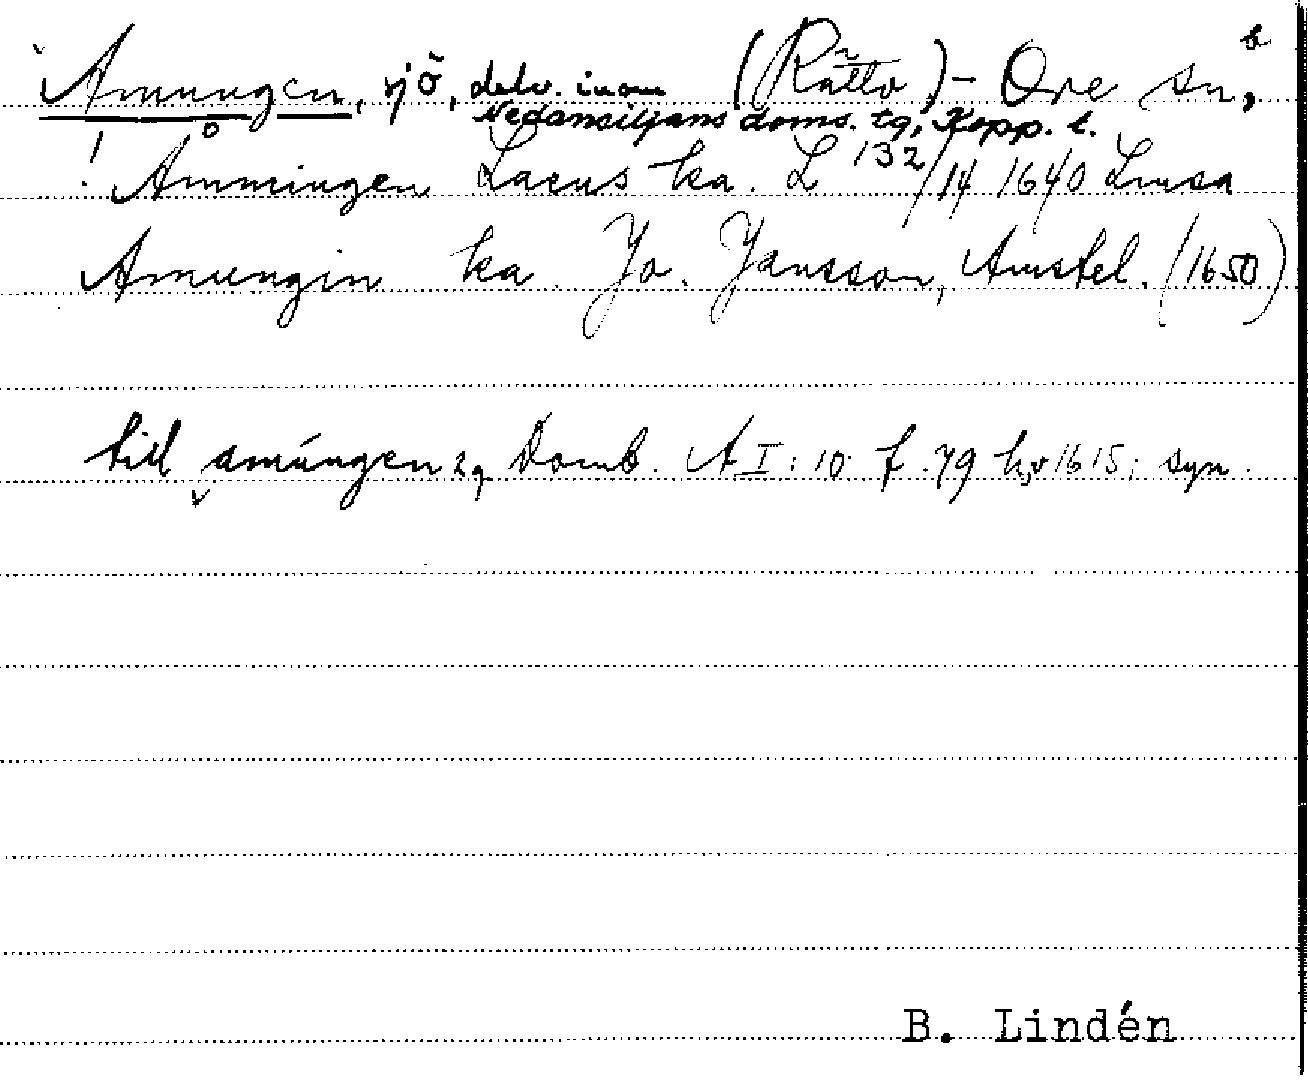 Amungen, sjö, delv. inom (Rättv) - Ore sn, b
Nedansiljans doms. tg, Kopp. l.
Ammingen Lacus ka. L 132/14 1640 Lmsa
Amungin ka Jo. Jansson, Amstel. (1650)
till amúngen Domb. A I: 10 f. 79 h, v 1615; syn.
B. Lindén